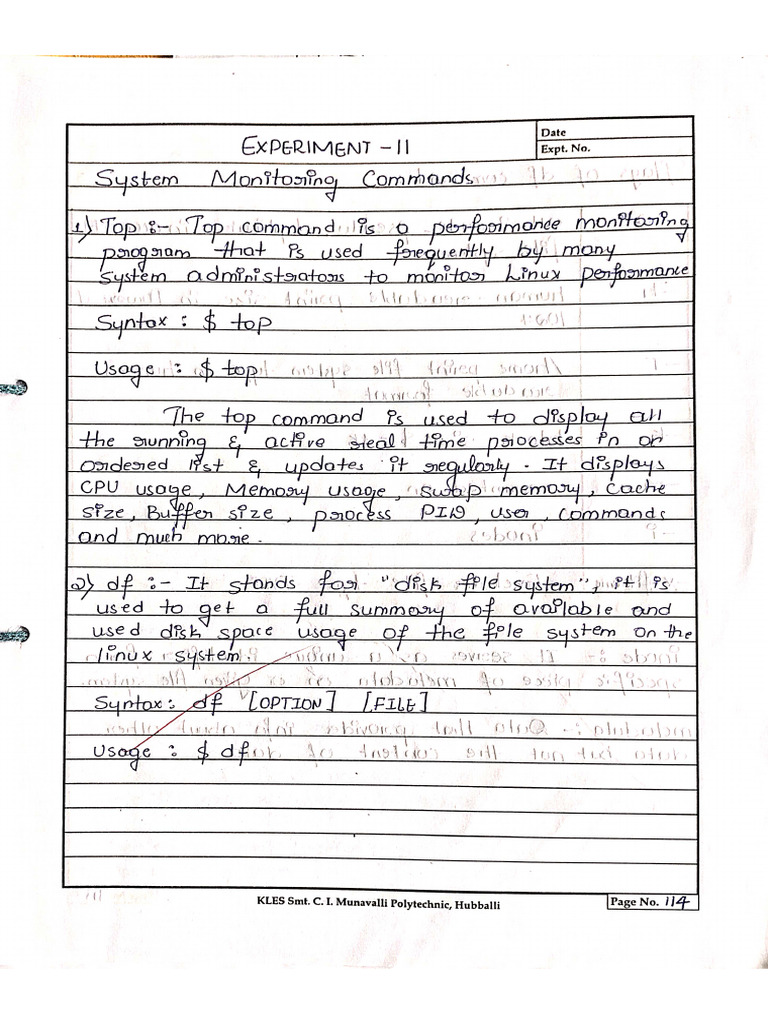 Date
EXPERIMENT - 11
Expt. No.
System Monitoring Commands
1) Top :- Top command is a performance monitoring
program that is used frequently by many
system administrators to monitor Linux performance
Syntax : $ top
Usage : $ top
The top command is used to display all
the running & active real time processes in or
ordered list & updates it regularly. It displays
CPU usage, Memory usage, swap memory, Cache
size, Buffer size, process PID, user, commands
and much more.
2) df :- It stands for "disk file system", it is
used to get a full summary of available and
used disk space usage of the file system on the
linux system.
Syntax: df [OPTION] [FILE]
Usage : $ df
KLES Smt. C. I. Munavalli Polytechnic, Hubballi
Page No. 114